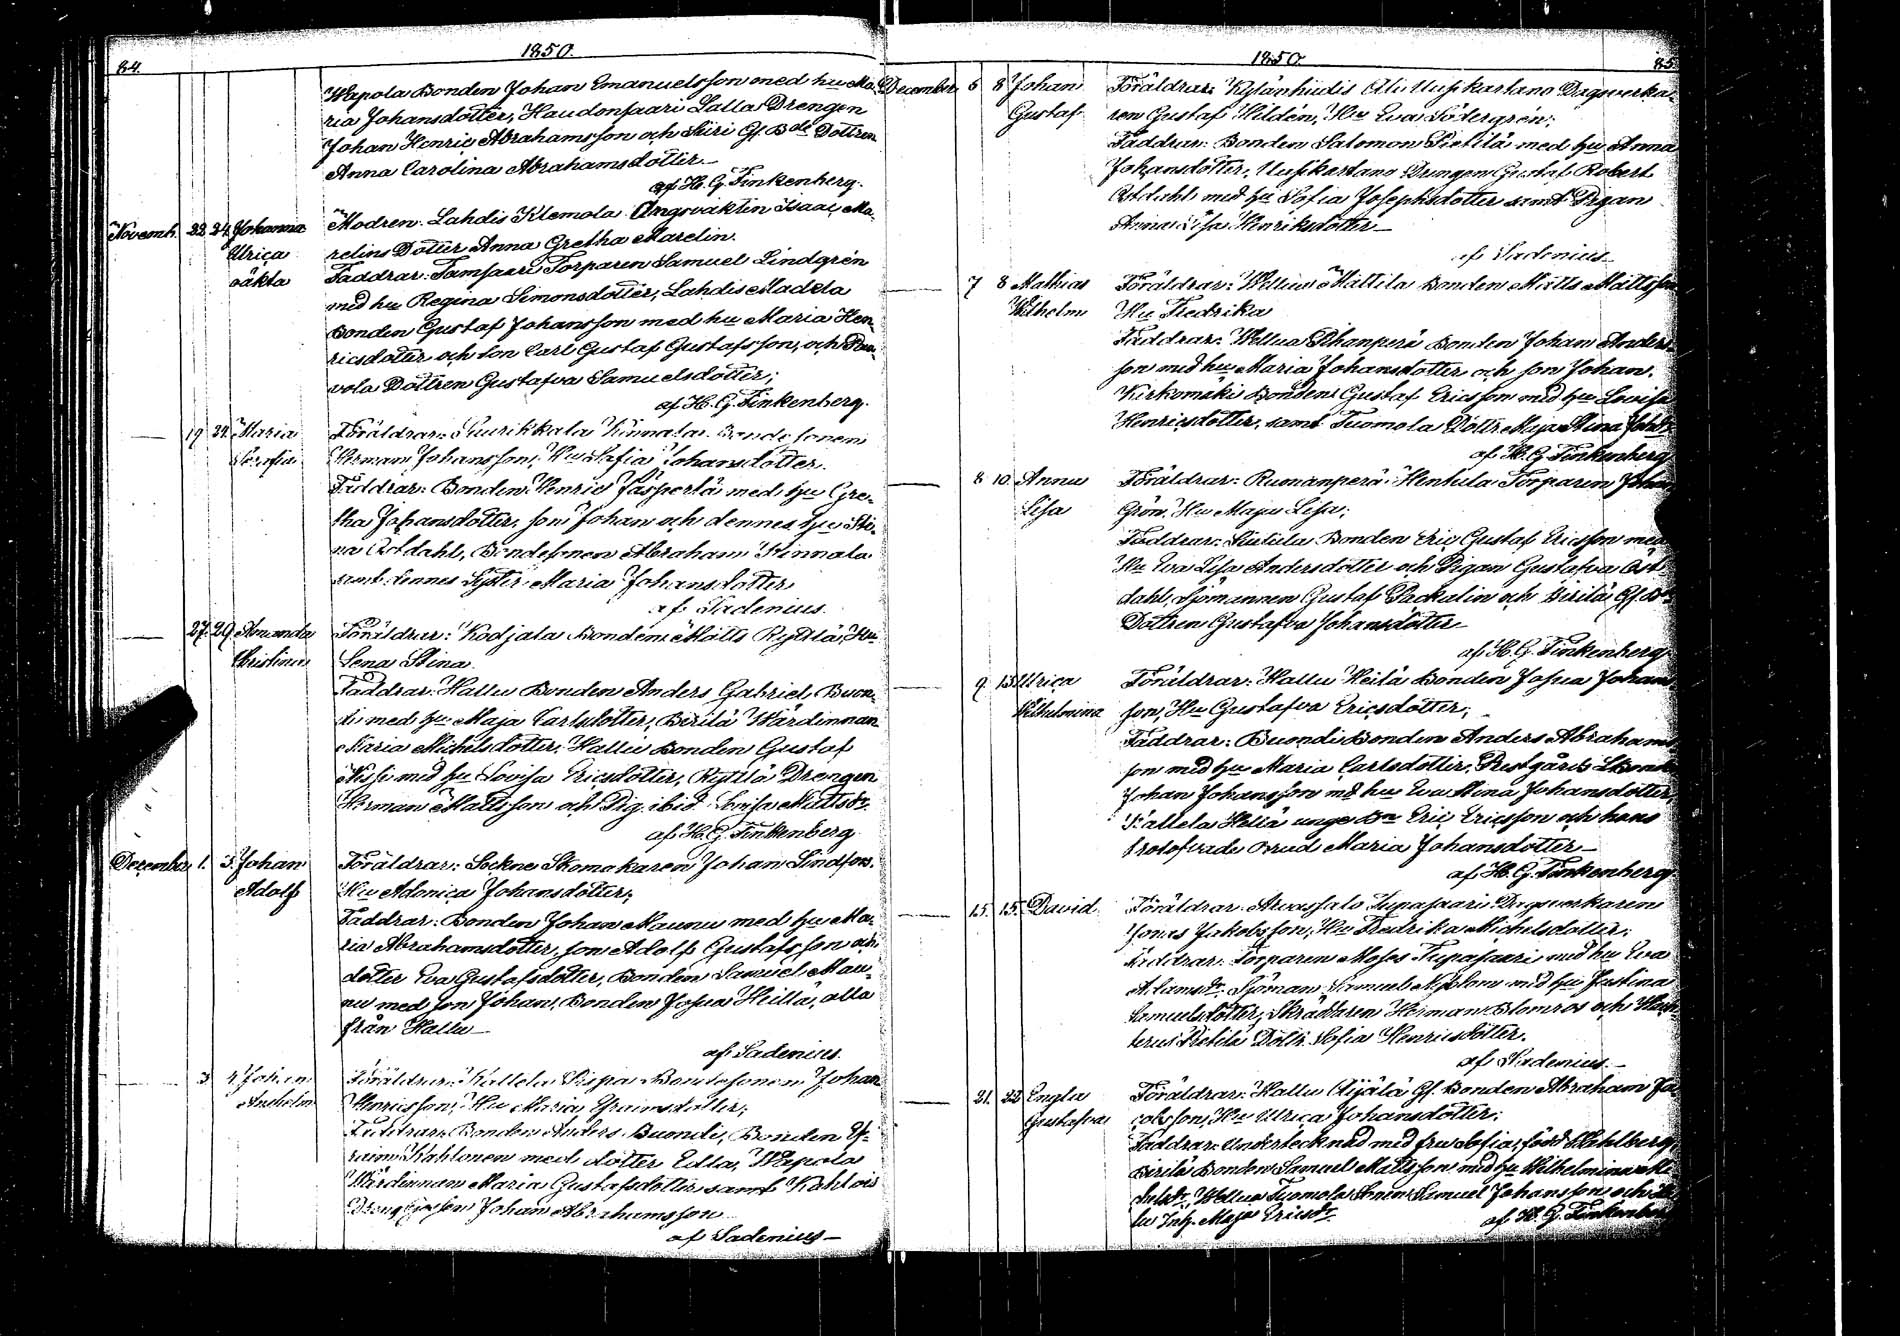 84.
1850.
Wapola Bonden Johan Emanuelsson med hu Ma-
ria Johansdotter, Haudonsaari Lalla Drengen
Johan Henric Abrahamsson och Siiri Gf. Bde Dottren
Anna Carolina Abrahamsdotter.
af H. G. Finkenberg.
Novemb. 22 24 Johanna Modren. Lahdis Klemola Ängsvaktin Isaac Ma-
Ulrica relins Dotter Anna Gretha Marelin.
oäkta Faddrar: Tamsaari Torparen Samuel Lindgrén
med hu Regina Simonsdotter, Lahdis Madela
Bonden Gustaf Johansson med hu Maria Hen-
ricsdotter och son Carl Gustaf Gustafsson, och
vola Dottren Gustafva Samuelsdotter;
af H. G. Finkenberg.
19 24 Maria Föräldrar: Kinnala Bonde sonen
Serafia Herman Johansson, Hu Sofia Johansdotter.
Faddrar: Bonden Henric Jäspertä med hu Gre-
tha Johansdotter, son Johan och dennes hu Sti-
na Östdahl, Bondesonen Abraham Kinnala
samt dennes Syster Maria Johansdotter
af Sadenius.
27 29 Amanda Föräldrar: Kodjala Bonden Matts Rytilä, Hu
Christina Lena Stina.
Faddrar: Hallu Bonden Anders Gabriel Buon-
di med hu Maja Carlsdotter, Birilä Wärdinnan
Maria Michelsdotter, Hallu Bonden Gustaf
Nissi med hu Lovisa Ericsdotter, Rytilä Drengen
Herman Mattsson och Pig. ibid. Lovisa Mattsdr.
af H. G. Finkenberg
December 1. 3. Johan Föräldrar: Sockne Skomakaren Johan Lindfors.
Adolf Hu Adonica Johansdotter;
Faddrar: Bonden Johan Maunu med hu Ma-
ria Abrahamsdotter, son Adolf Gustafsson och
dotter Eva Gustafsdotter, Bonden Samuel Mau-
nu med son Johan, Bonden Josua Heillä, alla
från Hallu
af Sadenius.
3 4 Johan Föräldrar: Kallela Bondesonen Johan
Anshelm Henricsson, Hu Maria Efraimsdotter;
Faddrar: Bonden Anders Buondi, Bonden Ef-
raim Kahlonen med dotter Edla, Wapola
Wärdinnan Maria Gustafsdotter samt
Johan Abrahamsson
af Sadenius
1850.
85
December 6 8 Johan Föräldrar: Kylänhiidis Ali Uusikartano Dagsverka-
Gustaf ren Gustaf Hildén, Hu Eva Södergrén;
Faddrar: Bonden Salomon Pietilä med hu Anna
Johansdotter, Uusikartano Drengen Gustaf Robert
Östdahl med hu Sofia Josephsdotter samt Pigan
Anna Lisa Henriksdotter
af Sadenius
7 8 Mathias Föräldrar: Wellua Mattila Bonden Matts Mattsson
Wilhelm Hu Fredrika
Faddrar: Wellua Bonden Johan Anders-
son med hu Maria Johansdotter och son Johan.
Kirkomäki Bonden Gustaf Ericsson med hu Lovisa
Henricsdotter, samt Tuomola Dottr. Maja Stina
af H. G. Finkenberg
8 10 Anna Föräldrar: Ruonanperä Hentula Torparen Johan
Lisa Grön, Hu Maja Lisa;
Faddrar: Bonden Eric Gustaf Ericsson med
Hu Eva Lisa Andersdotter och Pigan Gustafva Öst-
dahl, Sjömannen Gustaf Packalin och Birilä Gf. Bde
Dottren Gustafva Johansdotter
af H. G. Finkenberg
9 15 Ulrica Föräldrar: Hallu Heilä Bonden Josua Johans-
Wilhelmina son, Hu Gustafva Ericsdotter;
Faddrar: Buondi Bonden Anders Abrahams-
son med hu Maria Carlsdotter, Prestgårds
Johan Johansson md hu Eva Stina Johansdotter,
Kallela Hellä unge Bn Eric Ericsson och hans
trolofvade Brud Maria Johansdotter
af H. G. Finkenberg
15. 15. David Föräldrar: Arvassalo Tupasaari Dagsverkaren
Jonas Jakobsson, Hu Fredrika Michelsdotter;
Faddrar: Torparen Moses Tupasaari med hu Eva
Adamsdr. Sjöman Samuel Nyblom md hu Justina
Samuelsdotter, Skräddaren Herman Blomros och
Pietilä Dottr. Sofia Henricsdotter.
af Sadenius
21. 22 Engla Föräldrar: Hallu Äijälä Gf. Bonden Abraham Ja-
Gustafva cobsson, Hu Ulrica Johansdotter;
Faddrar: Undertecknad med fru Sofia, född Wahlberg,
Birilä Bonden Samuel Mattsson med hu Wilhelmina
Wellua Tuomola Samuel Johansson och
Maja Ericsdr. af H. G. Finkenberg